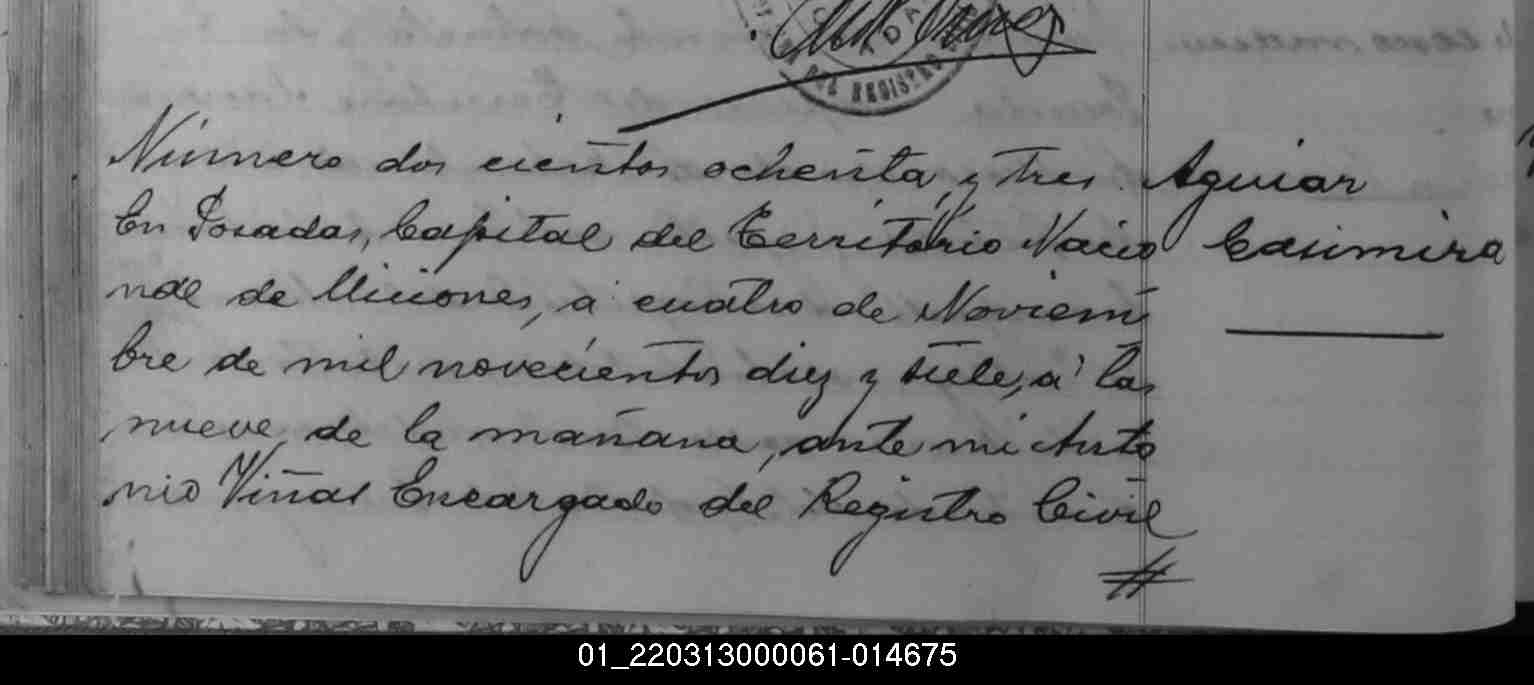 DEL REGISTRO
Número dos cientos ochenta, y tres
En Posadas, Capital del Territorio Nacio
nal de Misiones, á cuatro de Noviem
bre de mil novecientos diez y siete, á las
nueve, de la mañana, ante mi Anto
nio Viñas Encargado del Registro Civil
#
Aguiar
Casimira
01_220313000061-014675